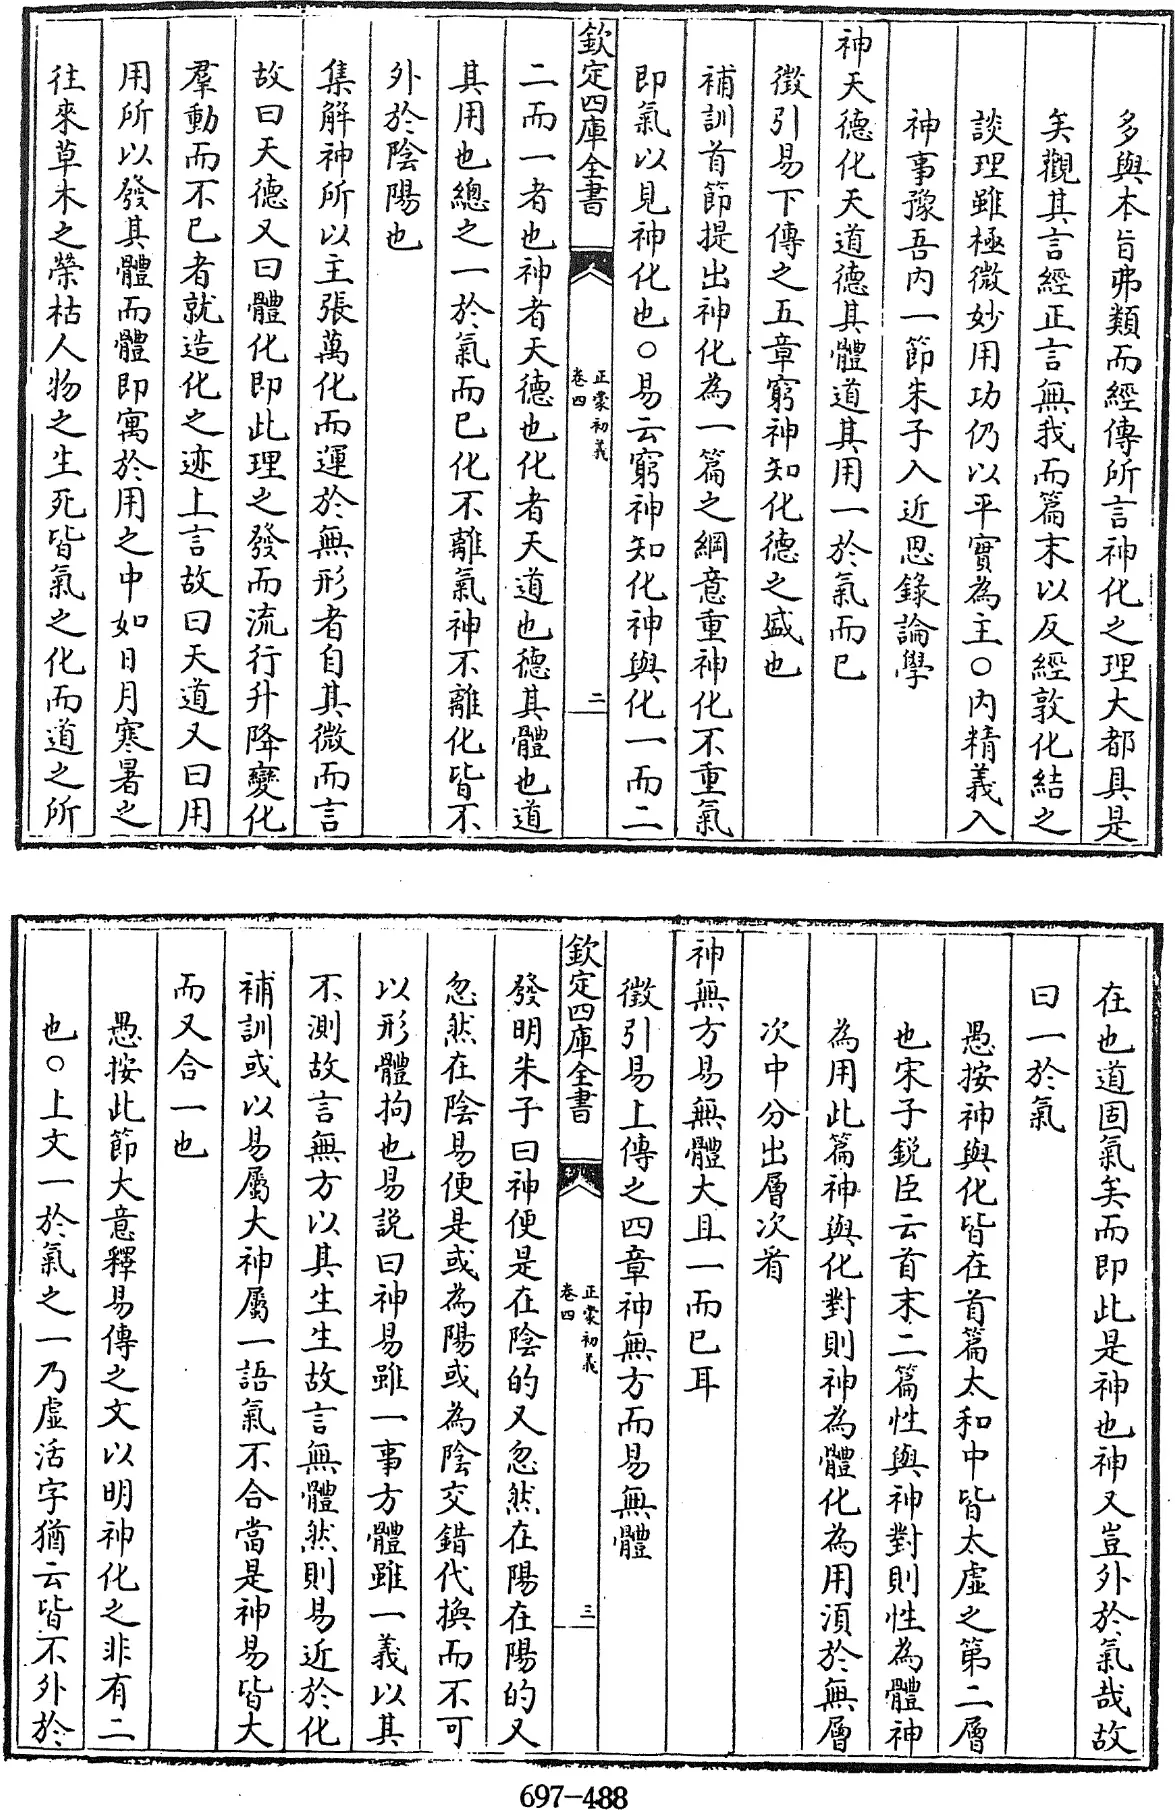 多與本旨弗類而經傳所言神化之理大都具是
矣觀其言經正言無我而篇末以反經敦化結之
談理雖極微妙用功仍以平實為主○內精義入
神事豫吾內一節朱子入近思錄論學
神天德化天道德其體道其用一於氣而已
徵引易下傳之五章窮神知化德之盛也
補訓首節提出神化為一篇之綱意重神化不重氣
即氣以見神化也○易云窮神知化神與化一而二
欽定四庫全書
正蒙初義
卷四
二
二而一者也神者天德也化者天道也德其體也道
其用也總之一於氣而已化不離氣神不離化皆不
外於陰陽也
集解神所以主張萬化而運於無形者自其微而言
故曰天德又曰體化即此理之發而流行升降變化
羣動而不已者就造化之迹上言故曰天道又曰用
用所以發其體而體即寓於用之中如日月寒暑之
往來草木之榮枯人物之生死皆氣之化而道之所
在也道固氣矣而即此是神也神又豈外於氣哉故
曰一於氣
愚按神與化皆在首篇太和中皆太虛之第二層
也宋子銳臣云首末二篇性與神對則性為體神
為用此篇神與化對則神為體化為用須於無層
次中分出層次看
神無方易無體大且一而已耳
徵引易上傳之四章神無方而易無體
欽定四庫全書
正蒙初義
卷四
三
發明朱子曰神便是在陰的又忽然在陽在陽的又
忽然在陰易便是或為陽或為陰交錯代換而不可
以形體拘也易說曰神易雖一事方體雖一義以其
不測故言無方以其生生故言無體然則易近於化
補訓或以易屬大神屬一語氣不合當是神易皆大
而又合一也
愚按此節大意釋易傳之文以明神化之非有二
也○上文一於氣之一乃虛活字猶云皆不外於
697-488